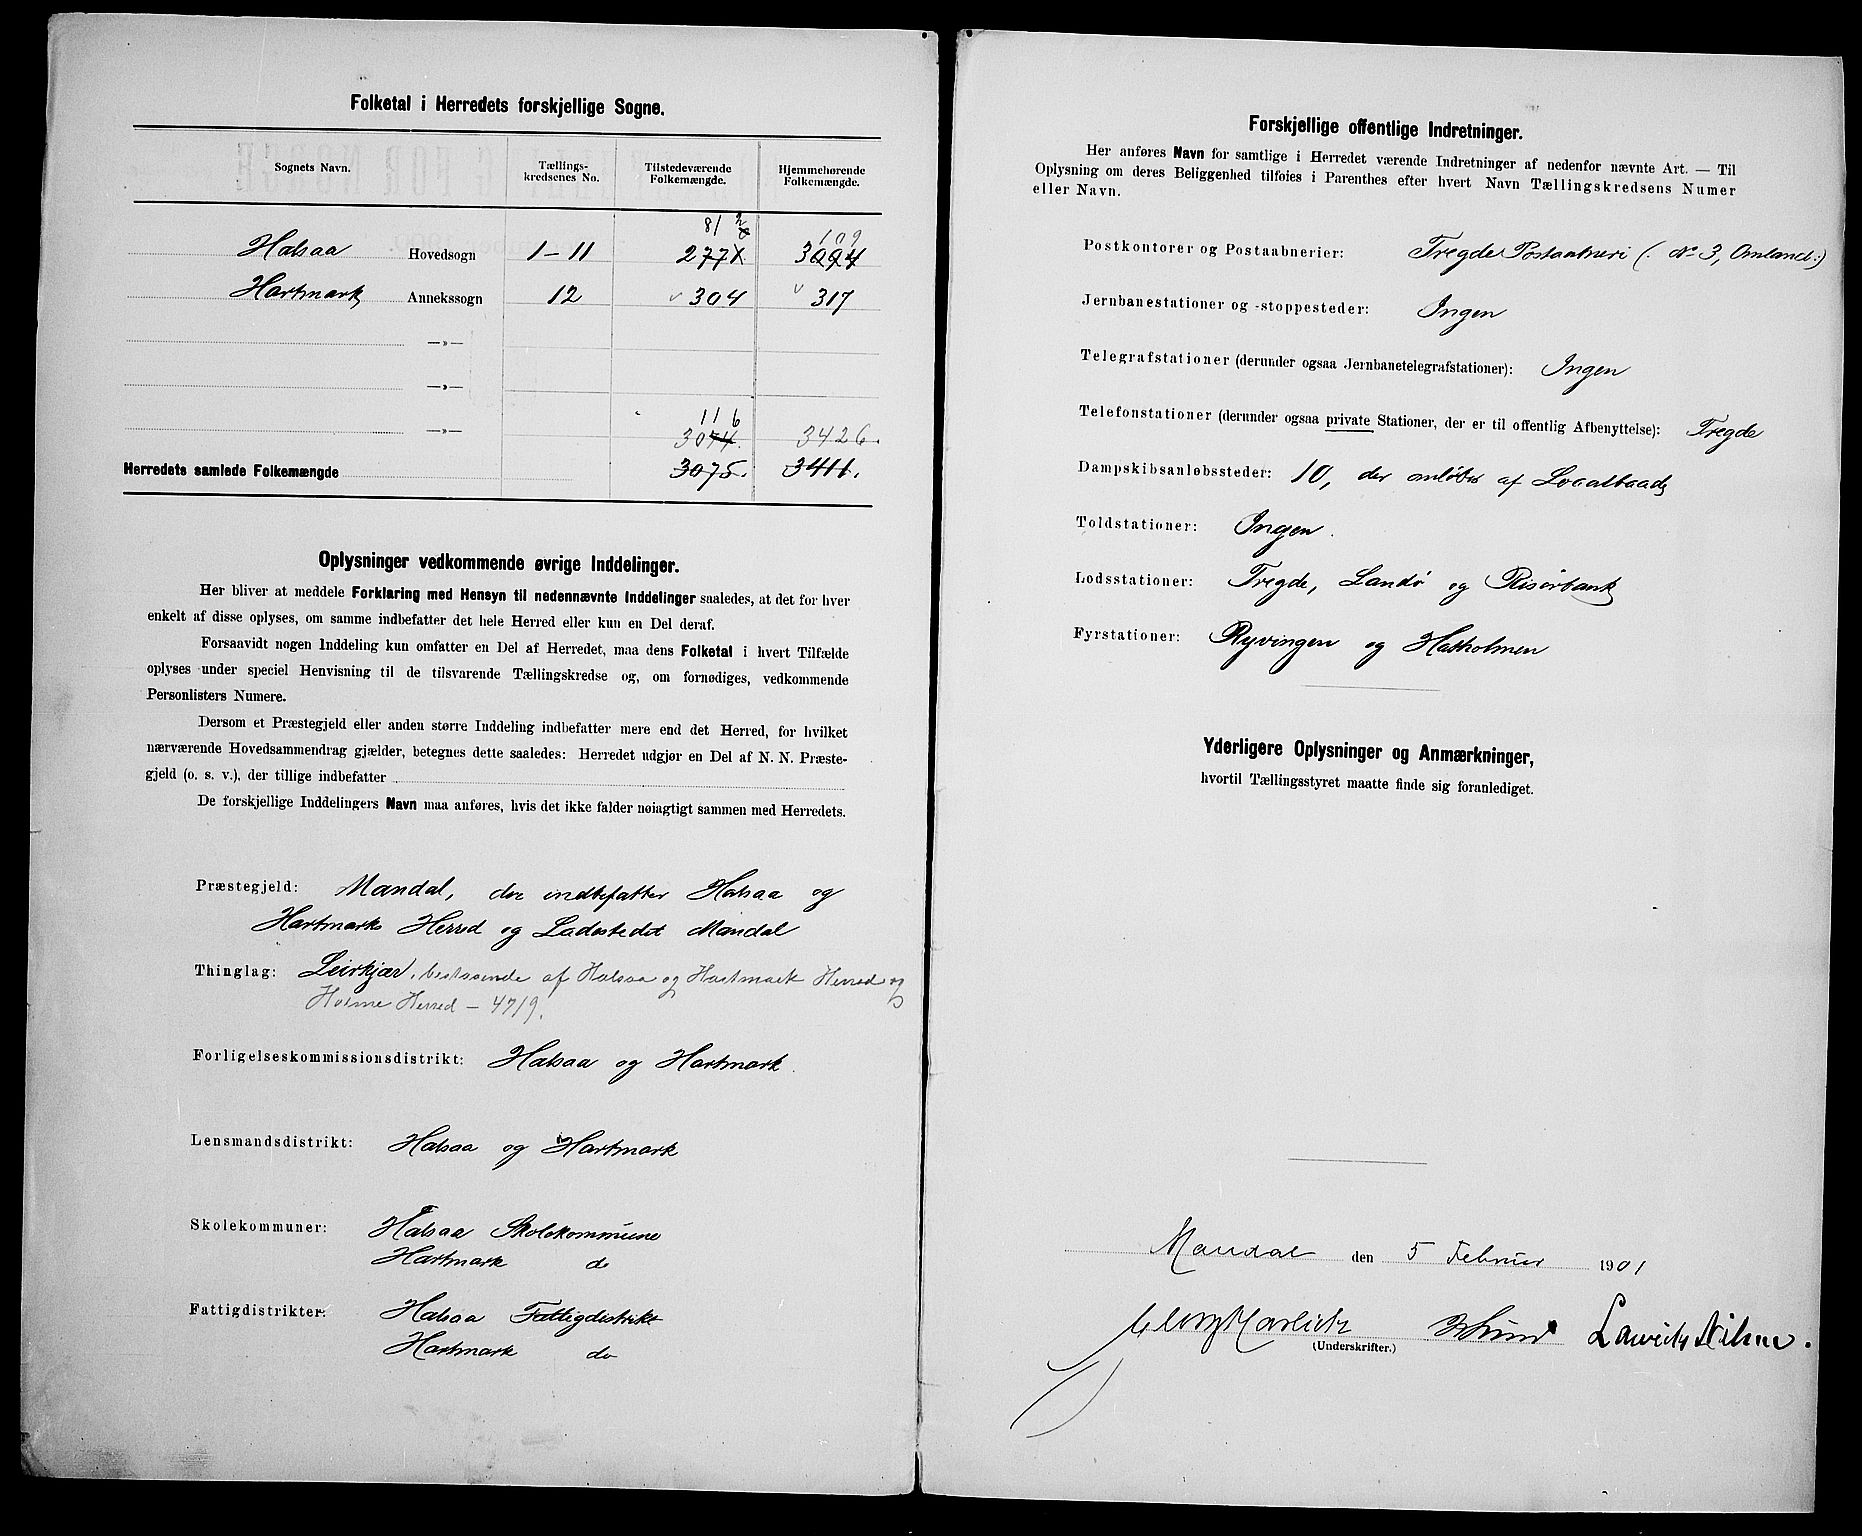 Folketal i Herredets forskjellige Sogne.
Sognets Navn. Tællings-kredsenes No. Tilstedeværende Folkemængde. Hjemmehørende Folkemængde.
81 2 109
Halsaa Hovedsogn 1-11 277 3094
Hartmark Annekssogn 12 304 317
—»—
—»—
116
—»— 3074 3426.
Herredets samlede Folkemængde 3075. 3411.
Oplysninger vedkommende øvrige Inddelinger.
Her bliver at meddele Forklaring med Hensyn til nedennævnte Inddelinger saaledes, at det for hver
enkelt af disse oplyses, om samme indbefatter det hele Herred eller kun en Del deraf.
Forsaavidt nogen Inddeling kun omfatter en Del af Herredet, maa dens Folketal i hvert Tilfælde
oplyses under speciel Henvisning til de tilsvarende Tællingskredse og, om fornødiges, vedkommende
Personlisters Numere.
Dersom et Præstegjeld eller anden større Inddeling indbefatter mere end det Herred, for hvilket
nærværende Hovedsammendrag gjælder, betegnes dette saaledes: Herredet udgjør en Del af N. N. Præste-
gjeld (o. s. v.), der tillige indbefatter
De forskjellige Inddelingers Navn maa anføres, hvis det ikke falder nøiagtigt sammen med Herredets.
Præstegjeld: Mandal, der indbefatter Halsaa og
Hartmarks Herred og Ladestedet Mandal
Thinglag: Leirkjær, bestaaende af Halsaa og Hartmark Herred og
Holme Herred - 4719.
Forligelseskommissionsdistrikt: Halsaa og Hartmark.
Lensmandsdistrikt: Halsaa og Hartmark
Skolekommuner: Halsaa Skolekommune
Hartmark do
Fattigdistrikter: Halsaa Fattigdistrikt
Hartmark do
Forskjellige offentlige Indretninger.
Her anføres Navn for samtlige i Herredet værende Indretninger af nedenfor nævnte Art. — Til
Oplysning om deres Beliggenhed tilføies i Parenthes efter hvert Navn Tællingskredsens Numer
eller Navn.
Postkontorer og Postaabnerier: Tregde Postaabneri (: No 3, Omland :)
Jernbanestationer og -stoppesteder: Ingen
Telegrafstationer (derunder ogsaa Jernbanetelegrafstationer): Ingen
Telefonstationer (derunder ogsaa private Stationer, der er til offentlig Afbenyttelse): Tregde
Dampskibsanløbssteder: 10, der anløbes af Localbaade
Toldstationer: Ingen.
Lodsstationer: Tregde, Landø og Risørbank
Fyrstationer: Ryvingen og Hatholmen
Yderligere Oplysninger og Anmærkninger,
hvortil Tællingsstyret maatte finde sig foranlediget.
Mandal den 5 Februar 1901
(Underskrifter.)